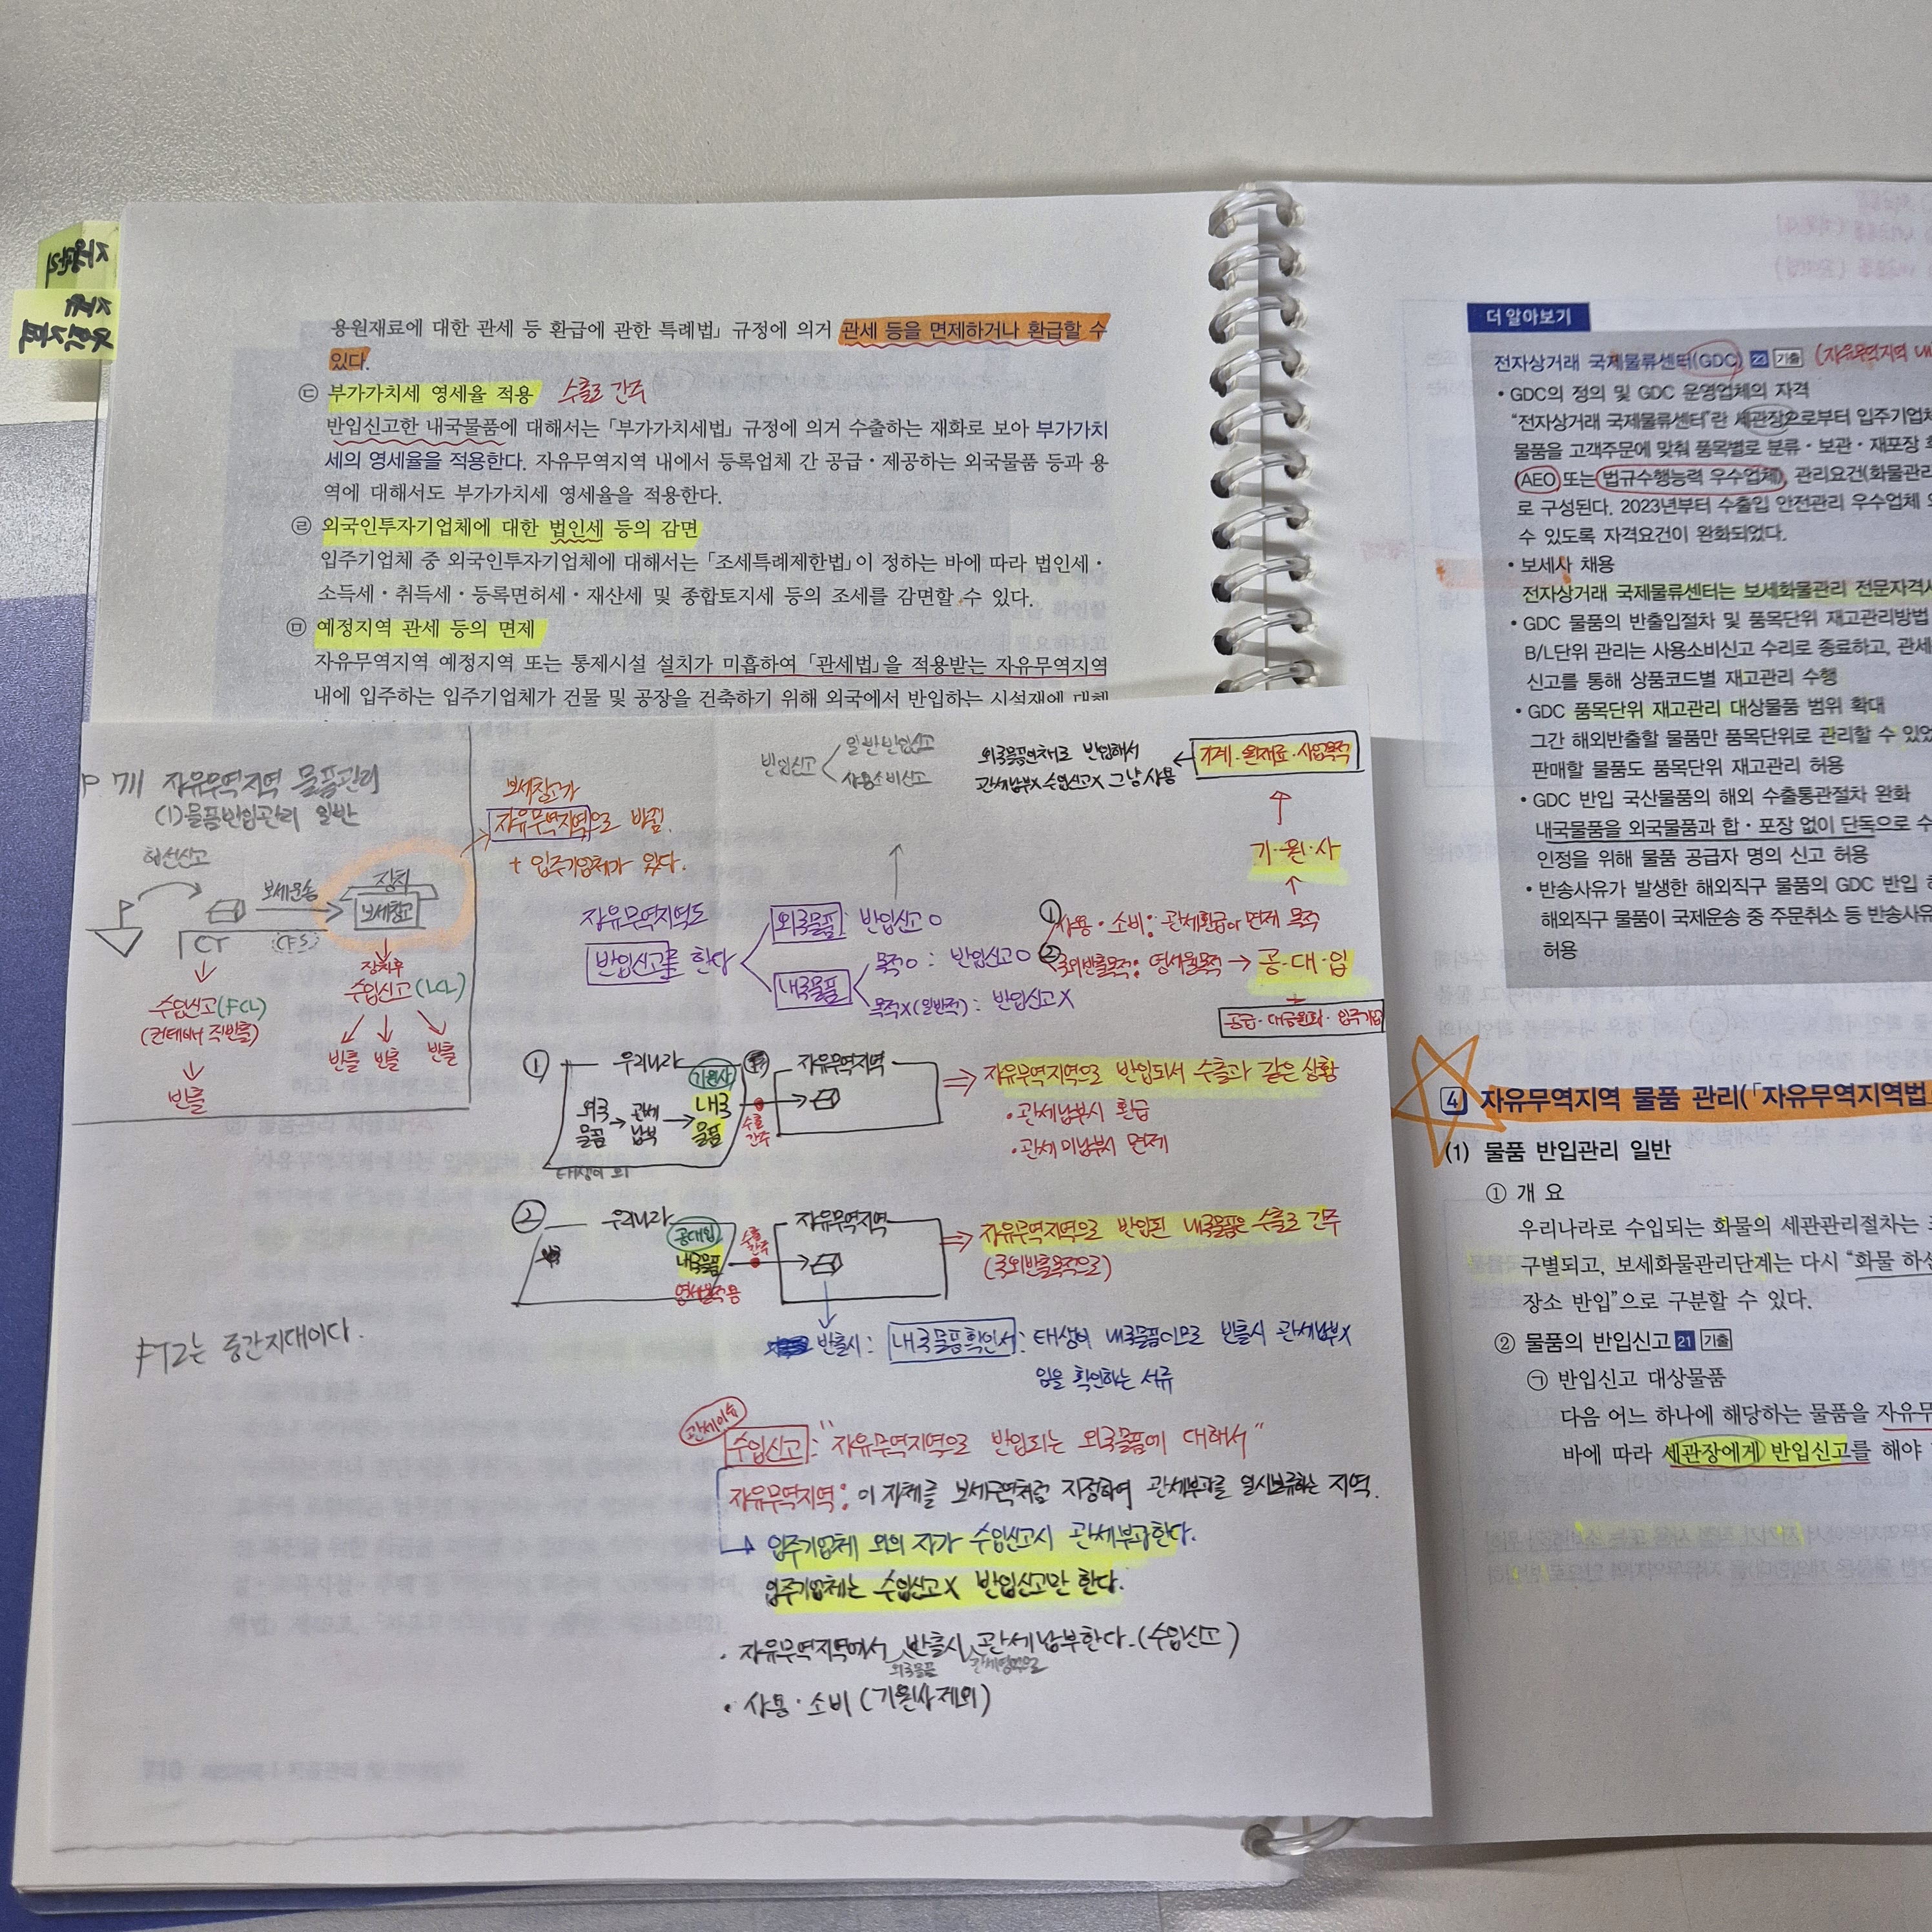 용원재료에 대한 관세 등 환급에 관한 특례법」 규정에 의거 관세 등을 면제하거나 환급할 수
있다.
㉢ 부가가치세 영세율 적용 수출로 간주
반입신고한 내국물품에 대해서는 「부가가치세법」 규정에 의거 수출하는 재화로 보아 부가가치
세의 영세율을 적용한다. 자유무역지역 내에서 등록업체 간 공급·제공하는 외국물품 등과 용
역에 대해서도 부가가치세 영세율을 적용한다.
㉣ 외국인투자기업체에 대한 법인세 등의 감면
입주기업체 중 외국인투자기업체에 대해서는 「조세특례제한법」이 정하는 바에 따라 법인세·
소득세·취득세·등록면허세·재산세 및 종합토지세 등의 조세를 감면할 수 있다.
㉤ 예정지역 관세 등의 면제
자유무역지역 예정지역 또는 통제시설 설치가 미흡하여 「관세법」을 적용받는 자유무역지역
내에 입주하는 입주기업체가 건물 및 공장을 건축하기 위해 외국에서 반입하는 시설재에 대해
P 711 자유무역지역 물품관리
(1) 물품반입관리 일반
하선신고
보세운송
장치
보세창고
CT
(CFS)
수입신고(FCL)
(컨테이너 직반출)
반출
장치후
수입신고(LCL)
반출 반출 반출
보세창고가
자유무역지역으로 바뀜.
+ 입주기업체가 있다.
반입신고
일반반입신고
사용소비신고
외국물품인채로 반입해서
관세납부X 수입신고X 그냥 사용
기계·원재료·사업목적
기·원·사
자유무역지역도
반입신고를 한다
외국물품: 반입신고 O
내국물품
목적O: 반입신고 O
목적X(일반적): 반입신고 X
① 사용·소비: 관세환급이나 면제 목적
② 국외반출목적: 영세율목적 → 공·대·입
공급·대금원화·입주기업
① 우리나라
기원사
외국물품 → 관세납부 → 내국물품
수출간주
태생이 외
자유무역지역
⇒ 자유무역지역으로 반입되서 수출과 같은 상황
• 관세납부시 환급
• 관세 미납부시 면제
② 우리나라
공대입
내국물품
영세율적용
수출간주
자유무역지역
⇒ 자유무역지역으로 반입된 내국물품은 수출로 간주
(국외반출목적으로)
반출시: 내국물품확인서: 태생이 내국물품이므로 반출시 관세납부X
임을 확인하는 서류
FTZ는 중간지대이다.
관세이슈
수입신고: "자유무역지역으로 반입되는 외국물품에 대해서"
자유무역지역: 이 자체를 보세구역처럼 지정하여 관세부과를 일시보류하는 지역.
→ 입주기업체 외의 자가 수입신고시 관세부과한다.
입주기업체는 수입신고X 반입신고만 한다.
• 자유무역지역에서 반출시 관세납부한다.(수입신고)
외국물품 관세영역으로
• 사용·소비 (기원사제외)
더 알아보기
전자상거래 국제물류센터(GDC) 23 기출 (자유무역지역 내
• GDC의 정의 및 GDC 운영업체의 자격
"전자상거래 국제물류센터"란 세관장으로부터 입주기업체
물품을 고객주문에 맞춰 품목별로 분류·보관·재포장
(AEO 또는 법규수행능력 우수업체), 관리요건(화물관리
로 구성된다. 2023년부터 수출입 안전관리 우수업체
수 있도록 자격요건이 완화되었다.
• 보세사 채용
전자상거래 국제물류센터는 보세화물관리 전문자격사
• GDC 물품의 반출입절차 및 품목단위 재고관리방법
B/L단위 관리는 사용소비신고 수리로 종료하고, 관세
신고를 통해 상품코드별 재고관리 수행
• GDC 품목단위 재고관리 대상물품 범위 확대
그간 해외반출할 물품만 품목단위로 관리할 수 있었
판매할 물품도 품목단위 재고관리 허용
• GDC 반입 국산물품의 해외 수출통관절차 완화
내국물품을 외국물품과 합·포장 없이 단독으로 수
인정을 위해 물품 공급자 명의 신고 허용
• 반송사유가 발생한 해외직구 물품의 GDC 반입
해외직구 물품이 국제운송 중 주문취소 등 반송사유
허용
4 자유무역지역 물품 관리(「자유무역지역법」
(1) 물품 반입관리 일반
① 개 요
우리나라로 수입되는 화물의 세관관리절차는
구별되고, 보세화물관리단계는 다시 "화물 하선
장소 반입"으로 구분할 수 있다.
② 물품의 반입신고 21 기출
㉠ 반입신고 대상물품
다음 어느 하나에 해당하는 물품을 자유무
바에 따라 세관장에게 반입신고를 해야